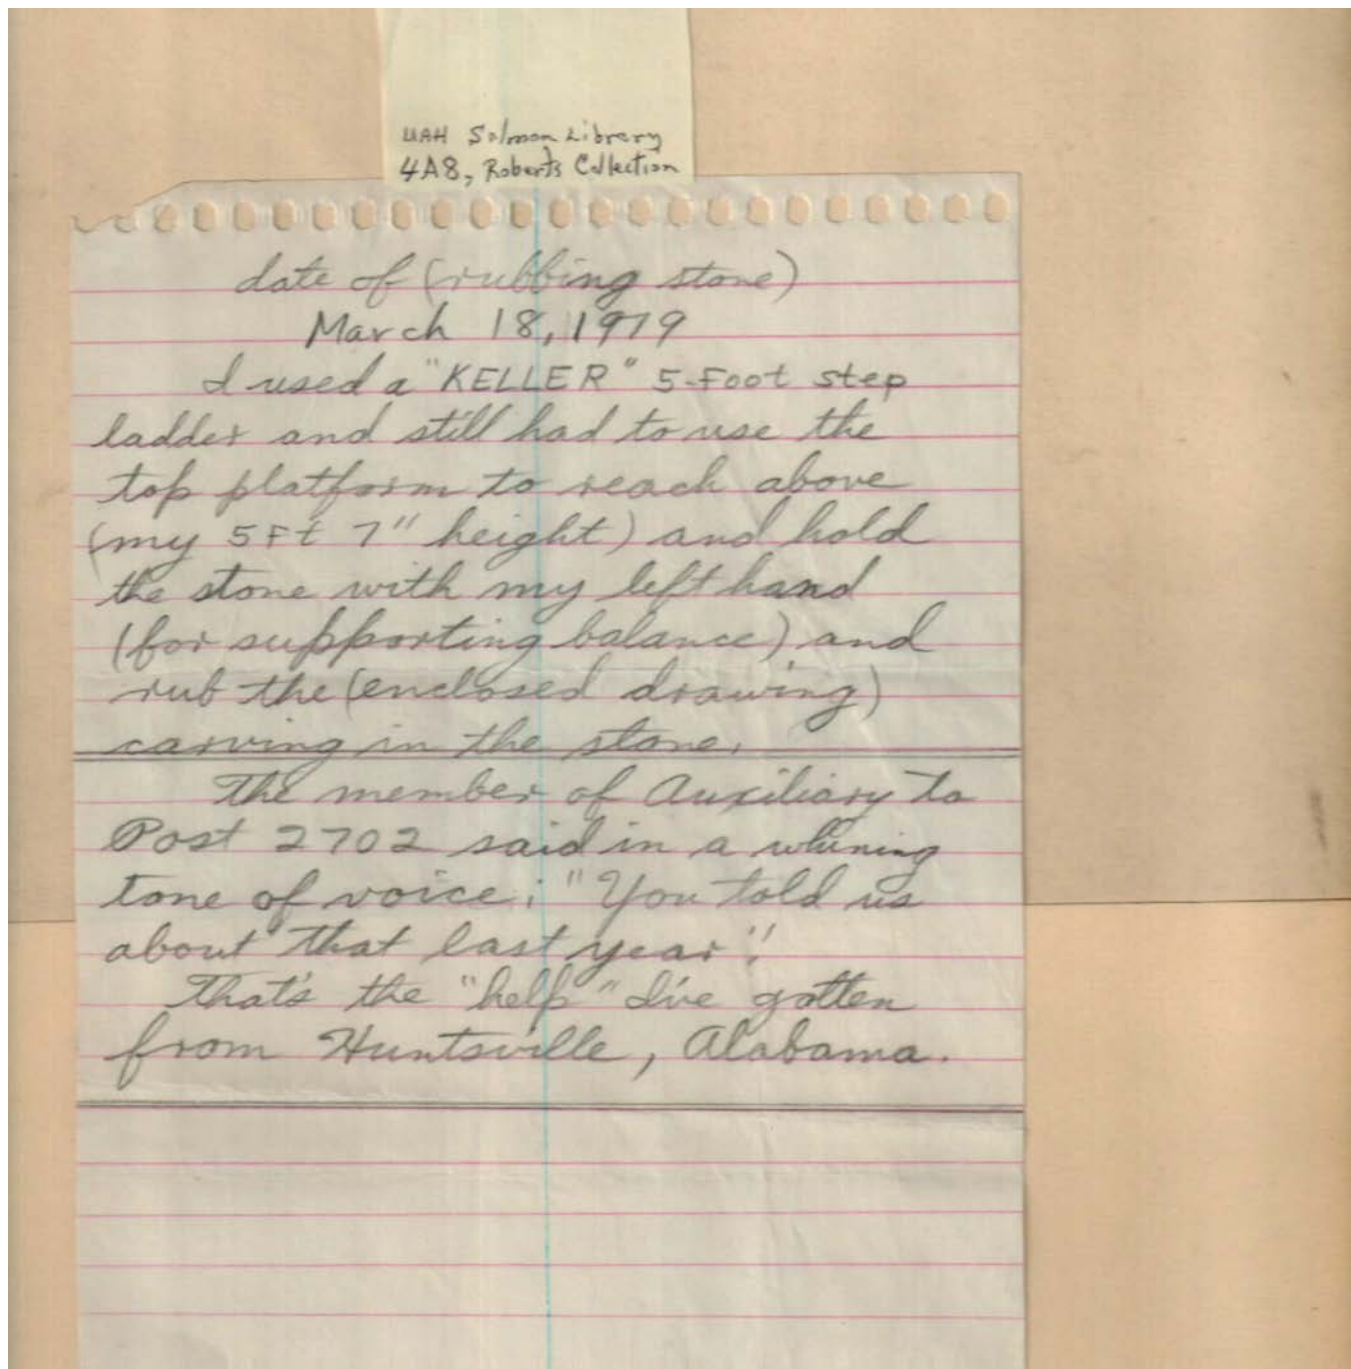 UAH Salmon Library
4A8, Roberts Collection
date of (rubbing stone)
March 18, 1979
I used a "KELLER" 5-Foot step
ladder and still had to use the
top platform to reach above
(my 5Ft 7" height) and hold
the stone with my left hand
(for supporting balance) and
rub the (enclosed drawing)
carving in the stone.
The member of Auxiliary to
Post 2702 said in a whining
tone of voice: "You told us
about that last year".
That's the "help" I've gotten
from Huntsville, Alabama.